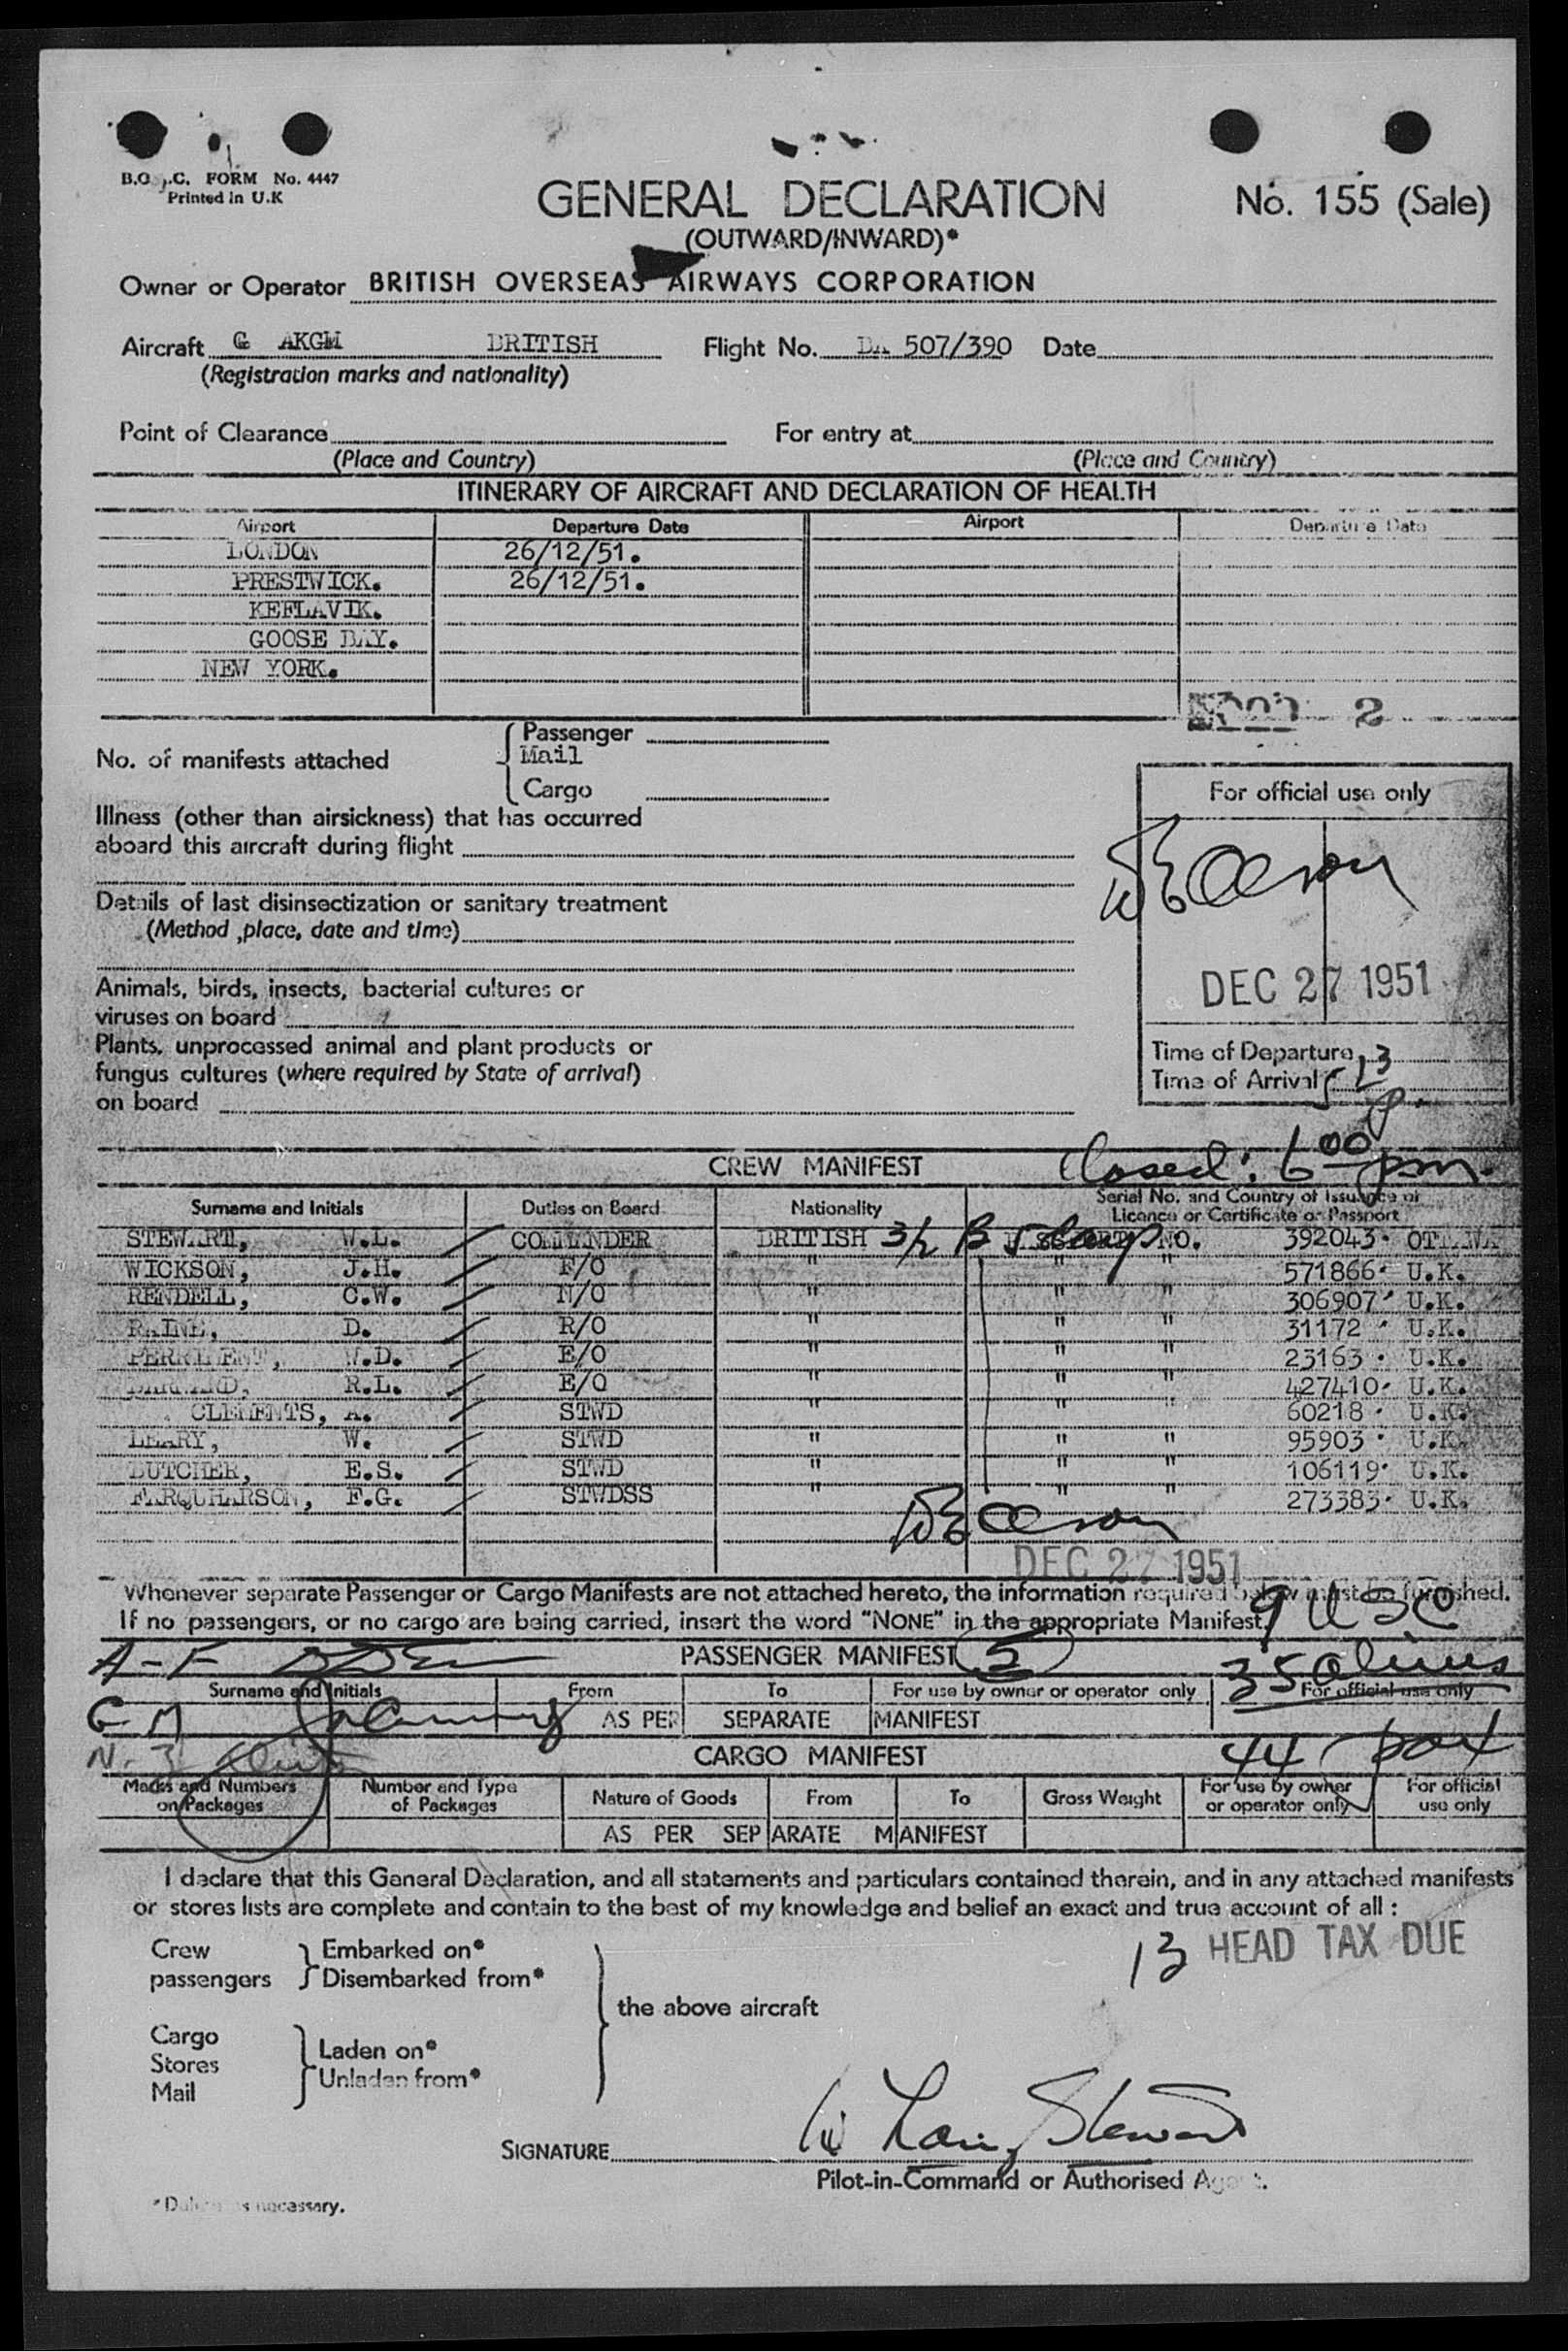 FORM No. 4447
Printed in U.K
GENERAL DECLARATION
No. 155 (Sale)
(OUTWARD/INWARD)*
Owner or Operator BRITISH OVERSEAS AIRWAYS CORPORATION
Aircraft G AKGM BRITISH Flight No. BA 507/390 Date
(Registration marks and nationality)
Point of Clearance For entry at
(Place and Country) (Place and Country)
ITINERARY OF AIRCRAFT AND DECLARATION OF HEALTH
Airport Departure Date Airport Departure Date
LONDON 26/12/51.
PRESTWICK. 26/12/51.
KEFLAVIK.
GOOSE BAY.
NEW YORK.
2
No. of manifests attached
Passenger
Mail
Cargo
For official use only
Illness (other than airsickness) that has occurred
aboard this aircraft during flight
Details of last disinsectization or sanitary treatment
(Method ,place, date and time)
DEC 27 1951
Animals, birds, insects, bacterial cultures or
viruses on board
Plants, unprocessed animal and plant products or
fungus cultures (where required by State of arrival)
on board
Time of Departure
Time of Arrival
Closed: 6 00 pm.
CREW MANIFEST
Surname and Initials Duties on Board Nationality Serial No. and Country of Issuance of
Licence or Certificate or Passport
STEWART, W.L. COMMANDER BRITISH NO. 392043 OTTAWA
WICKSON, J.H. F/O " " " 571866 U.K.
RENDELL, C.W. N/O " " " 306907 U.K.
RAINE, D. R/O " " " 31172 U.K.
W.D. E/O " " " 23163 U.K.
R.L. E/O " " " 427410 U.K.
CLEMENTS, A. STWD " " " 60218 U.K.
LEARY, W. STWD " " " 95903 U.K.
BUTCHER, E.S. STWD " " " 106119 U.K.
FARQUHARSON, F.G. STWDSS " " " 273383 U.K.
DEC 27 1951
Whenever separate Passenger or Cargo Manifests are not attached hereto, the information required below must be furnished.
If no passengers, or no cargo are being carried, insert the word "NONE" in the appropriate Manifest.
9 USC
A-F
PASSENGER MANIFEST
35 Aliens
Surname and Initials From To For use by owner or operator only For official use only
G-M
AS PER SEPARATE MANIFEST
N-Z
CARGO MANIFEST
44 pax
Marks and Numbers
on Packages
Number and Type
of Packages
Nature of Goods From To Gross Weight
For use by owner
or operator only
For official
use only
AS PER SEPARATE MANIFEST
I declare that this General Declaration, and all statements and particulars contained therein, and in any attached manifests
or stores lists are complete and contain to the best of my knowledge and belief an exact and true account of all :
13 HEAD TAX DUE
Crew
passengers
Embarked on*
Disembarked from*
the above aircraft
Cargo
Stores
Mail
Laden on*
Unladen from*
SIGNATURE
Pilot-in-Command or Authorised Agent.
necessary.